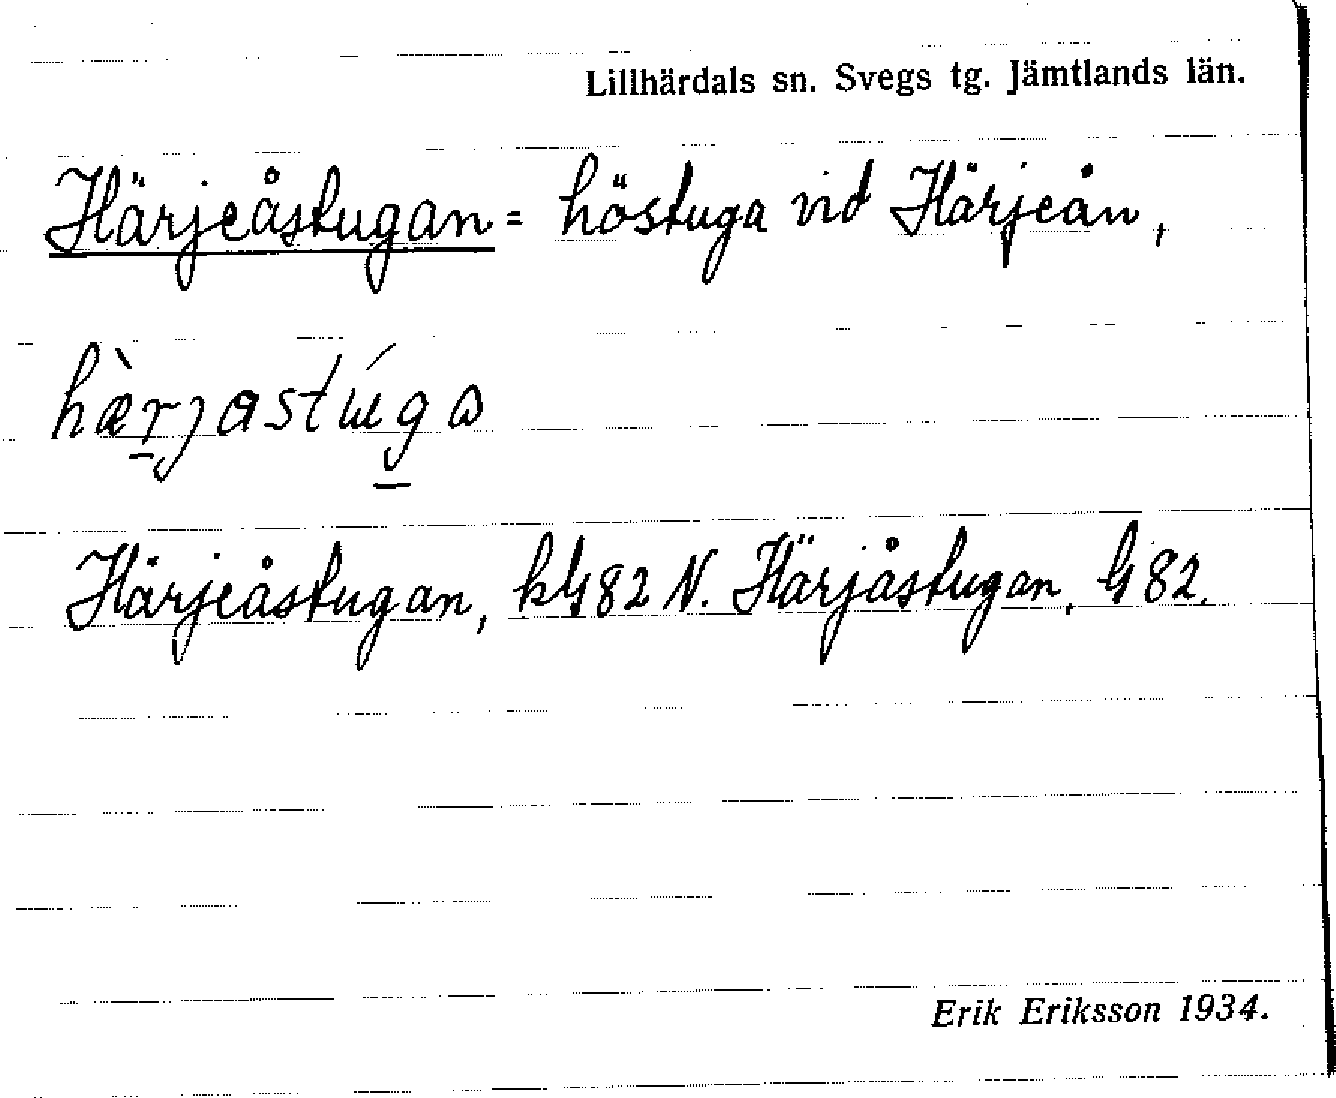 Lillhärdals sn. Svegs tg. Jämtlands län.
Härjeåstugan = höstuga vid Härjeån,
hæ̀r̠jastɯ́g̠ɷ
Härjeåstugan, k G82 N. Härjåstugan, G82.
Erik Eriksson 1934.